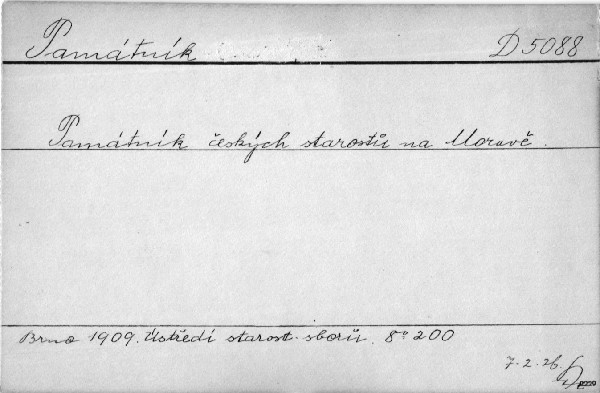 Památník D 5088
Památník českých starostů na Moravě.
Brno 1909. Ústředí starost. sborů. 8° 200
7. 2. 26.